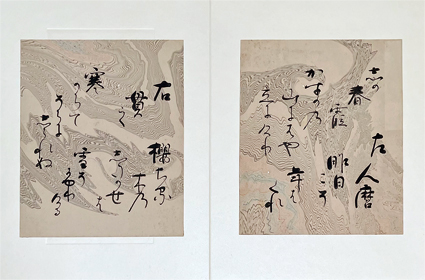 左人麿
昨日こそ
年はくれ
志か
春
霞
かすか乃
山にはや
立にけり
右
貫之
櫻ちる
木乃
志たかせは
寒
からて
そらに
志られぬ
雪そ
ふりける